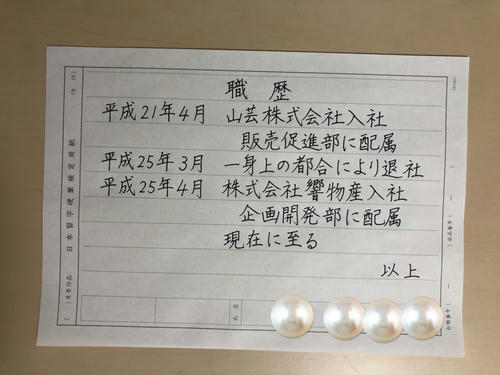 職歴
平成21年4月 山芸株式会社入社
販売促進部に配属
平成25年3月 一身上の都合により退社
平成25年4月 株式会社響物産入社
企画開発部に配属
現在に至る
以上
日本習字硬筆検定用紙
(9行)
( )月号作品
氏名